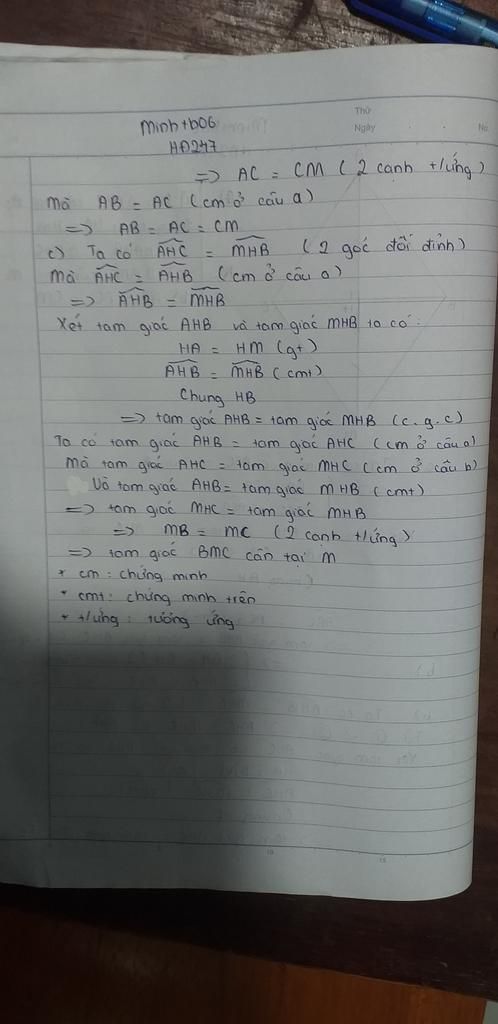 Thứ
Ngày
No.
Minh+b06
HĐ247
=> AC = CM ( 2 cạnh t/ứng )
Mà AB = AC ( cm ở câu a )
=> AB = AC = CM
c) Ta có AHC = MHB ( 2 góc đối đỉnh )
Mà AHC = AHB ( cm ở câu a )
=> AHB = MHB
Xét tam giác AHB và tam giác MHB ta có :
HA = HM (gt)
AHB = MHB ( cmt )
Chung HB
=> tam giác AHB = tam giác MHB ( c . g . c )
Ta có tam giác AHB = tam giác AHC ( cm ở câu a )
Mà tam giác AHC = tam giác MHC ( cm ở câu b )
Và tam giác AHB = tam giác MHB ( cmt )
=> tam giác MHC = tam giác MHB
=> MB = MC ( 2 cạnh t/ứng )
=> tam giác BMC cân tại M
* cm : chứng minh
* cmt : chứng minh trên
* t/ứng : tương ứng